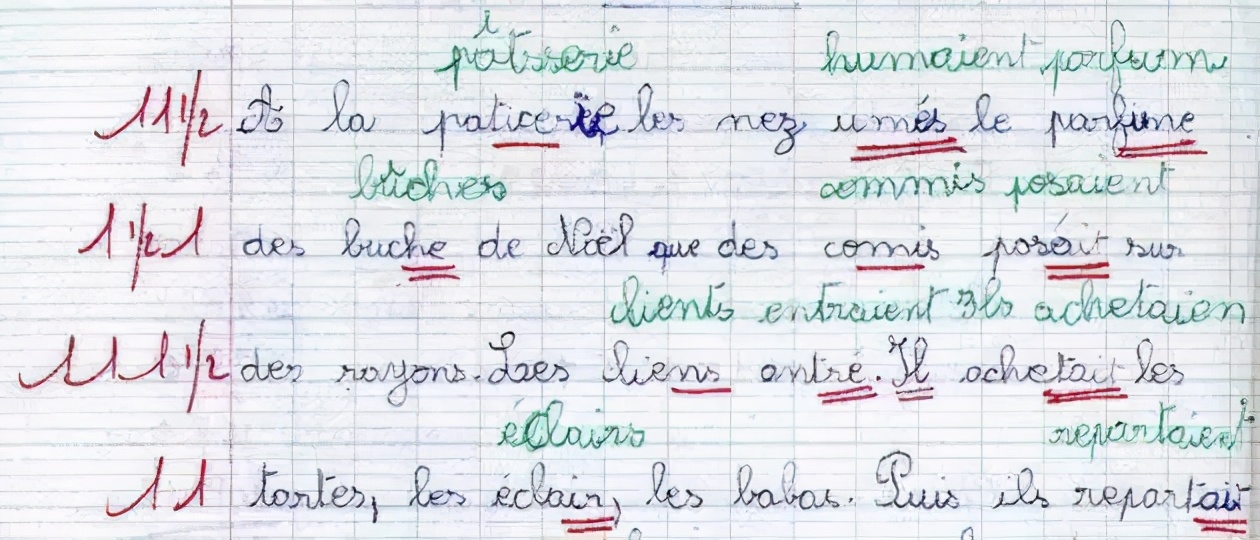 i
pâtsserie humaient parfum
11 1/2 A la paticerie les nez umés le parfume
bûches commis posaient
1 1/2 1 des buche de Noël que des comis posait sur
clients entraient Ils achetaien
1 1 1 1/2 des rayons. Les liens antré. Il achetait les
éclairs repartaient
1 1 tartes, les éclair, les babas. Puis ils repartait